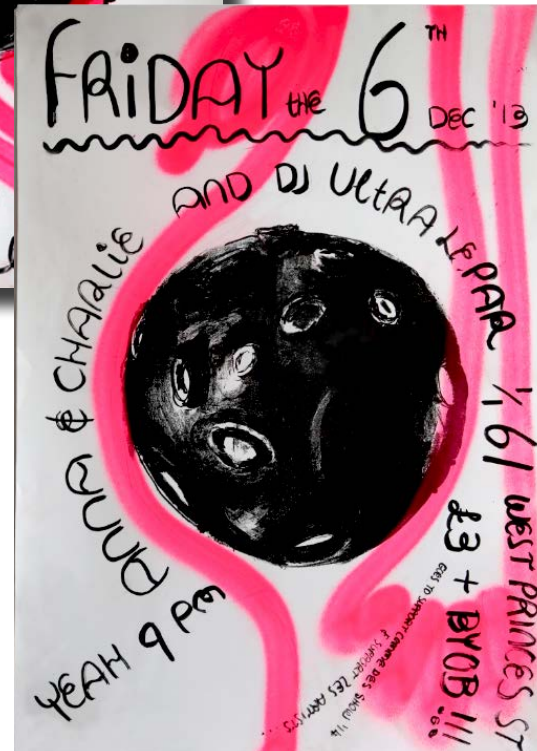 FRiDAY the 6TH DEC '13
ANNA & CHARLiE AND DJ ULtRA LEPAR 1/1 61 WEST PRINCES ST
YEAH 9 PM
£3 + BYOB !!!
GOES TO SUPPORT COMME DES SHOW '14
& SUPPORT LES ARTISTS ....